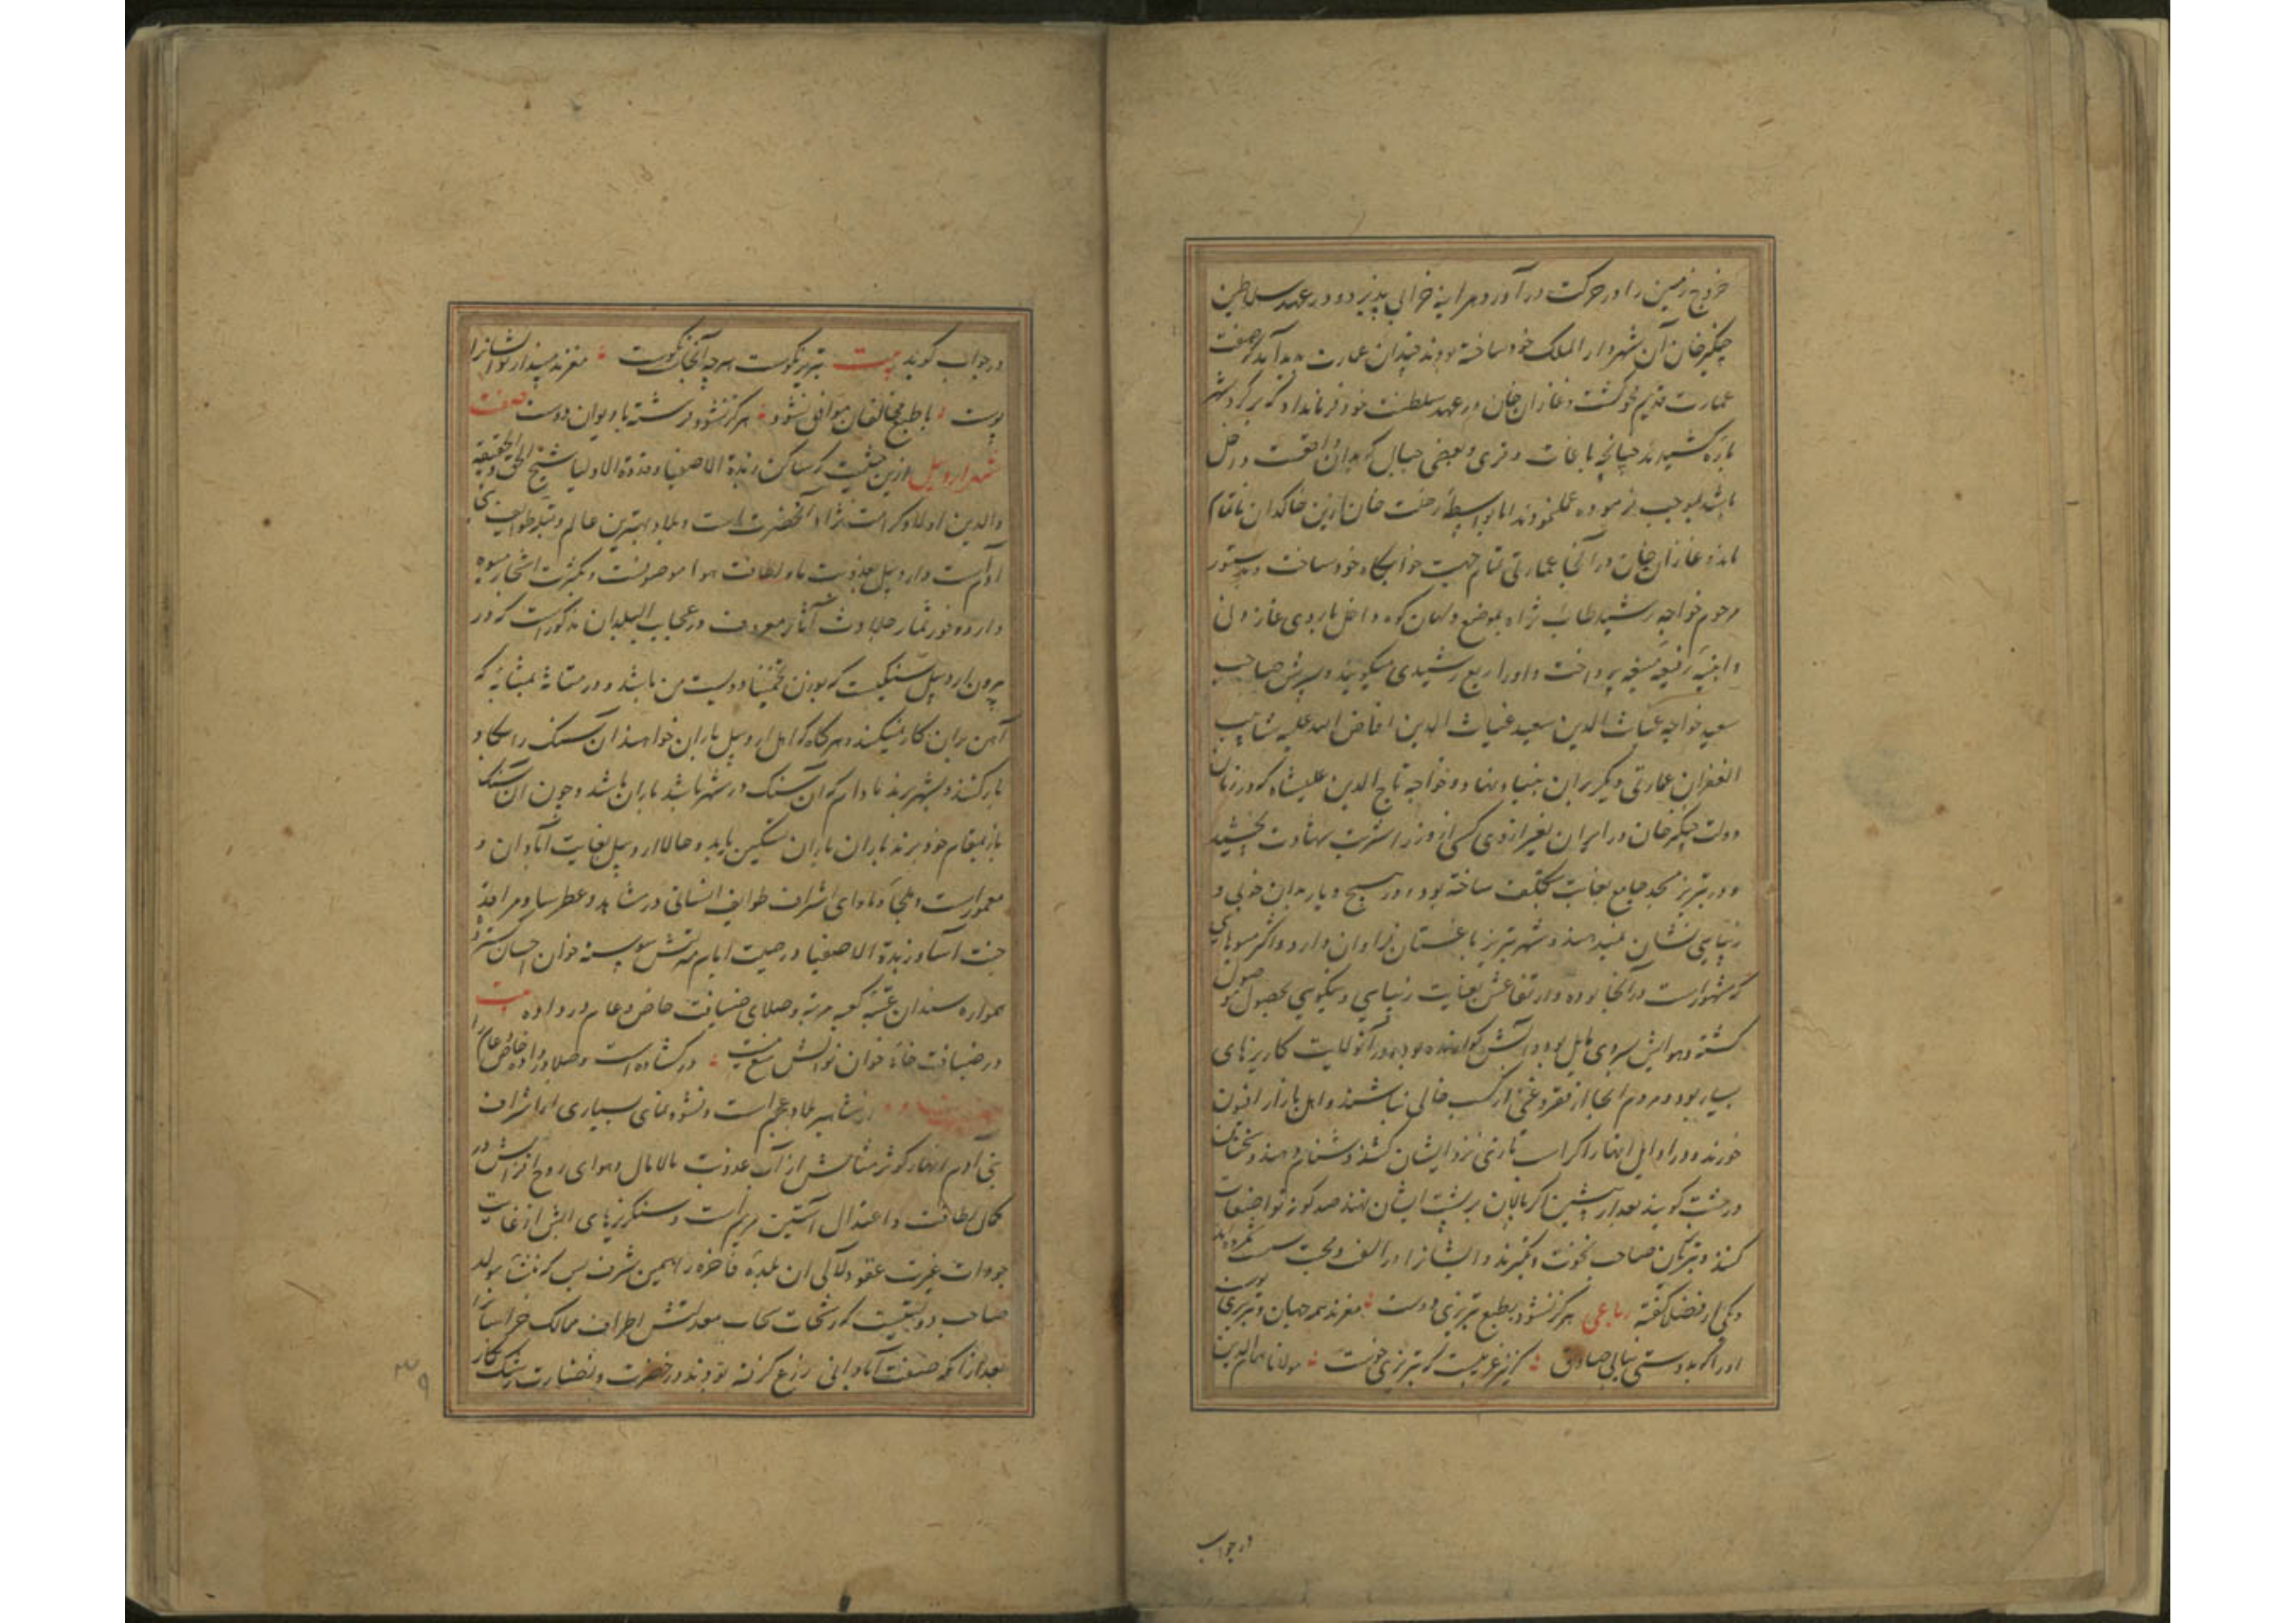 خروج زمین را در حرکت درآورد هر آینه خرابی پذیرد و در عهد سلاطین
چنگیزخان آن شهر دار الملک خود ساخته بودند چندان عمارت پدید آمد که صفت
عمارت قدیم محو گشت و غازان خان در عهد سلطنت خود فرمان داد که بر گرد شهر
باره کشیدند چنانچه باغات و قری و بعضی جبال که بدان واقعست در داخل
باشد بموجب فرموده عمل نمودند اما بواسطه رحلت خان ازین خاکدان ناتمام
ماند و غازان خان در آنجا عمارتی تمام جهت خوابگاه خود ساخت و دستور
مرحوم خواجه رشید طاب ثراه بموضع ولیان کوه داخل باروی غازانی
و ابنیه رفیعه منیعه پرداخت و او را ربع رشیدی میگویند و پسرش صاحب
سعید خواجه غیاث الدین سعید غیاث الدین افاض الله علیه شآبیب
الغفران عمارتی دیگر بر آن بنیاد نهاد و خواجه تاج الدین علیشاه که در زمان
دولت چنگیز خان در ایران بغیر از وی کسی از وزرا شربت شهادت نچشید
و در تبریز مسجد جامع بغایت بتکلف ساخته بود و در هیچ دیار بدان خوبی و
زیبایی نشان نمیدهند و شهر تبریز باغستان فراوان دارد و اکثر میوهای
که مشهور است در آنجا بوده و ارتفاعش بغایت زیبایی و نیکویی بحصول موصول
گشته و هوایش بسردی مایل بود و آبش گوارنده بود و در آن ولایت کاریزهای
بسیار بود و مردم آنجا از فقر و غنی از کسب خالی نباشند و اهل بازار افیون
خورنده و در اوایل نهار اگر اسب تازی نزد ایشان کشند دشنام دهند و سخنان
درشت گویند بعد از پیشین اگر پالان بر پشت ایشان نهند صد گونه تواضعات
کنند و متمولان صاحب نخوت و تکبرند و ایشانرا در الفت و محبت سست شمرده اند
و یکی از فضلا گفته رباعی هرگز نشود بطبع تبریزی دوست مغزند همه جهان و تبریزی پوست
او را که بدوستی نیابی صادق گر نیز غریبست که تبریزی خوست مولانا همام الدین
در جواب
در جواب گوید بیت تبریز نکوست هر چه آنجاست نکوست مغزند مپندار تو ایشانرا
پوست با طبع مخالفان موافق نشود هرگز نشود فرشته با دیوان دوست صفت
شهر اردبیل ازین حیثیت که ساکن زبدة الاصفیا و قدوة الاولیا شیخ صفی الحق و الحقیقه
والدین اولاد کرامت نژاد آنحضرت است و بلاد بهترین عالم و قبله طوایف بنی
آدم است و اردبیل بعذوبت ماء و لطافت هوا موصوفست و بکثرت اشجار میوه
دار و وفور ثمار حلاوت آثار معروف و در عجایب البلدان مذکور است که در
بیرون اردبیل سنگیست که بوزن تخمینا دویست من باشد و در متانت بمثابه که
آهن بر آن کار نمیکند و هرگاه که اهل اردبیل باران خواهند آن سنگ را بگاو
بار کنند و بشهر برند مادام که آن سنگ در شهر باشد باران باشد و چون آن سنگ
باز بمقام خود برند باران باران تسکین یابد و حالا اردبیل بغایت آبادان و
معمور است و ملجأ و ماوای اشراف طوایف انسانی در مشاهد و عطرسا و مراقد
جنت آسا و زبدة الاصفیا در حیت ایام مدتش پیوسته خوان احسان گسترده
همواره سندان عتبه کعبه مرتبه و صلای ضیافت خاص و عام در داده بیت
در ضیافت خانه خوان نوالش منع نیست در گشاده است و صلا در داده خاص و عام را
از مشاهیر بلاد عجم است و نشو و نمای بسیاری از اشراف
بنی آدم انهار کوثر مثالش از آب عذوبت مالامال و هوای روح افزایش در
کمال لطافت و اعتدال آستین مریم است و سنگریزهای آبش از غایت
جودت غیرت عقود لآلی آن بلده فاخره را همین شرف بس که منشا و مولد
صاحب دولتیست که رشحات سحاب معدلتش اطراف ممالک خراسانرا
بعد از آنکه صفت آبادانی رزع گرفته بودند در خضرت و نضارت رشک نگار
۳۹